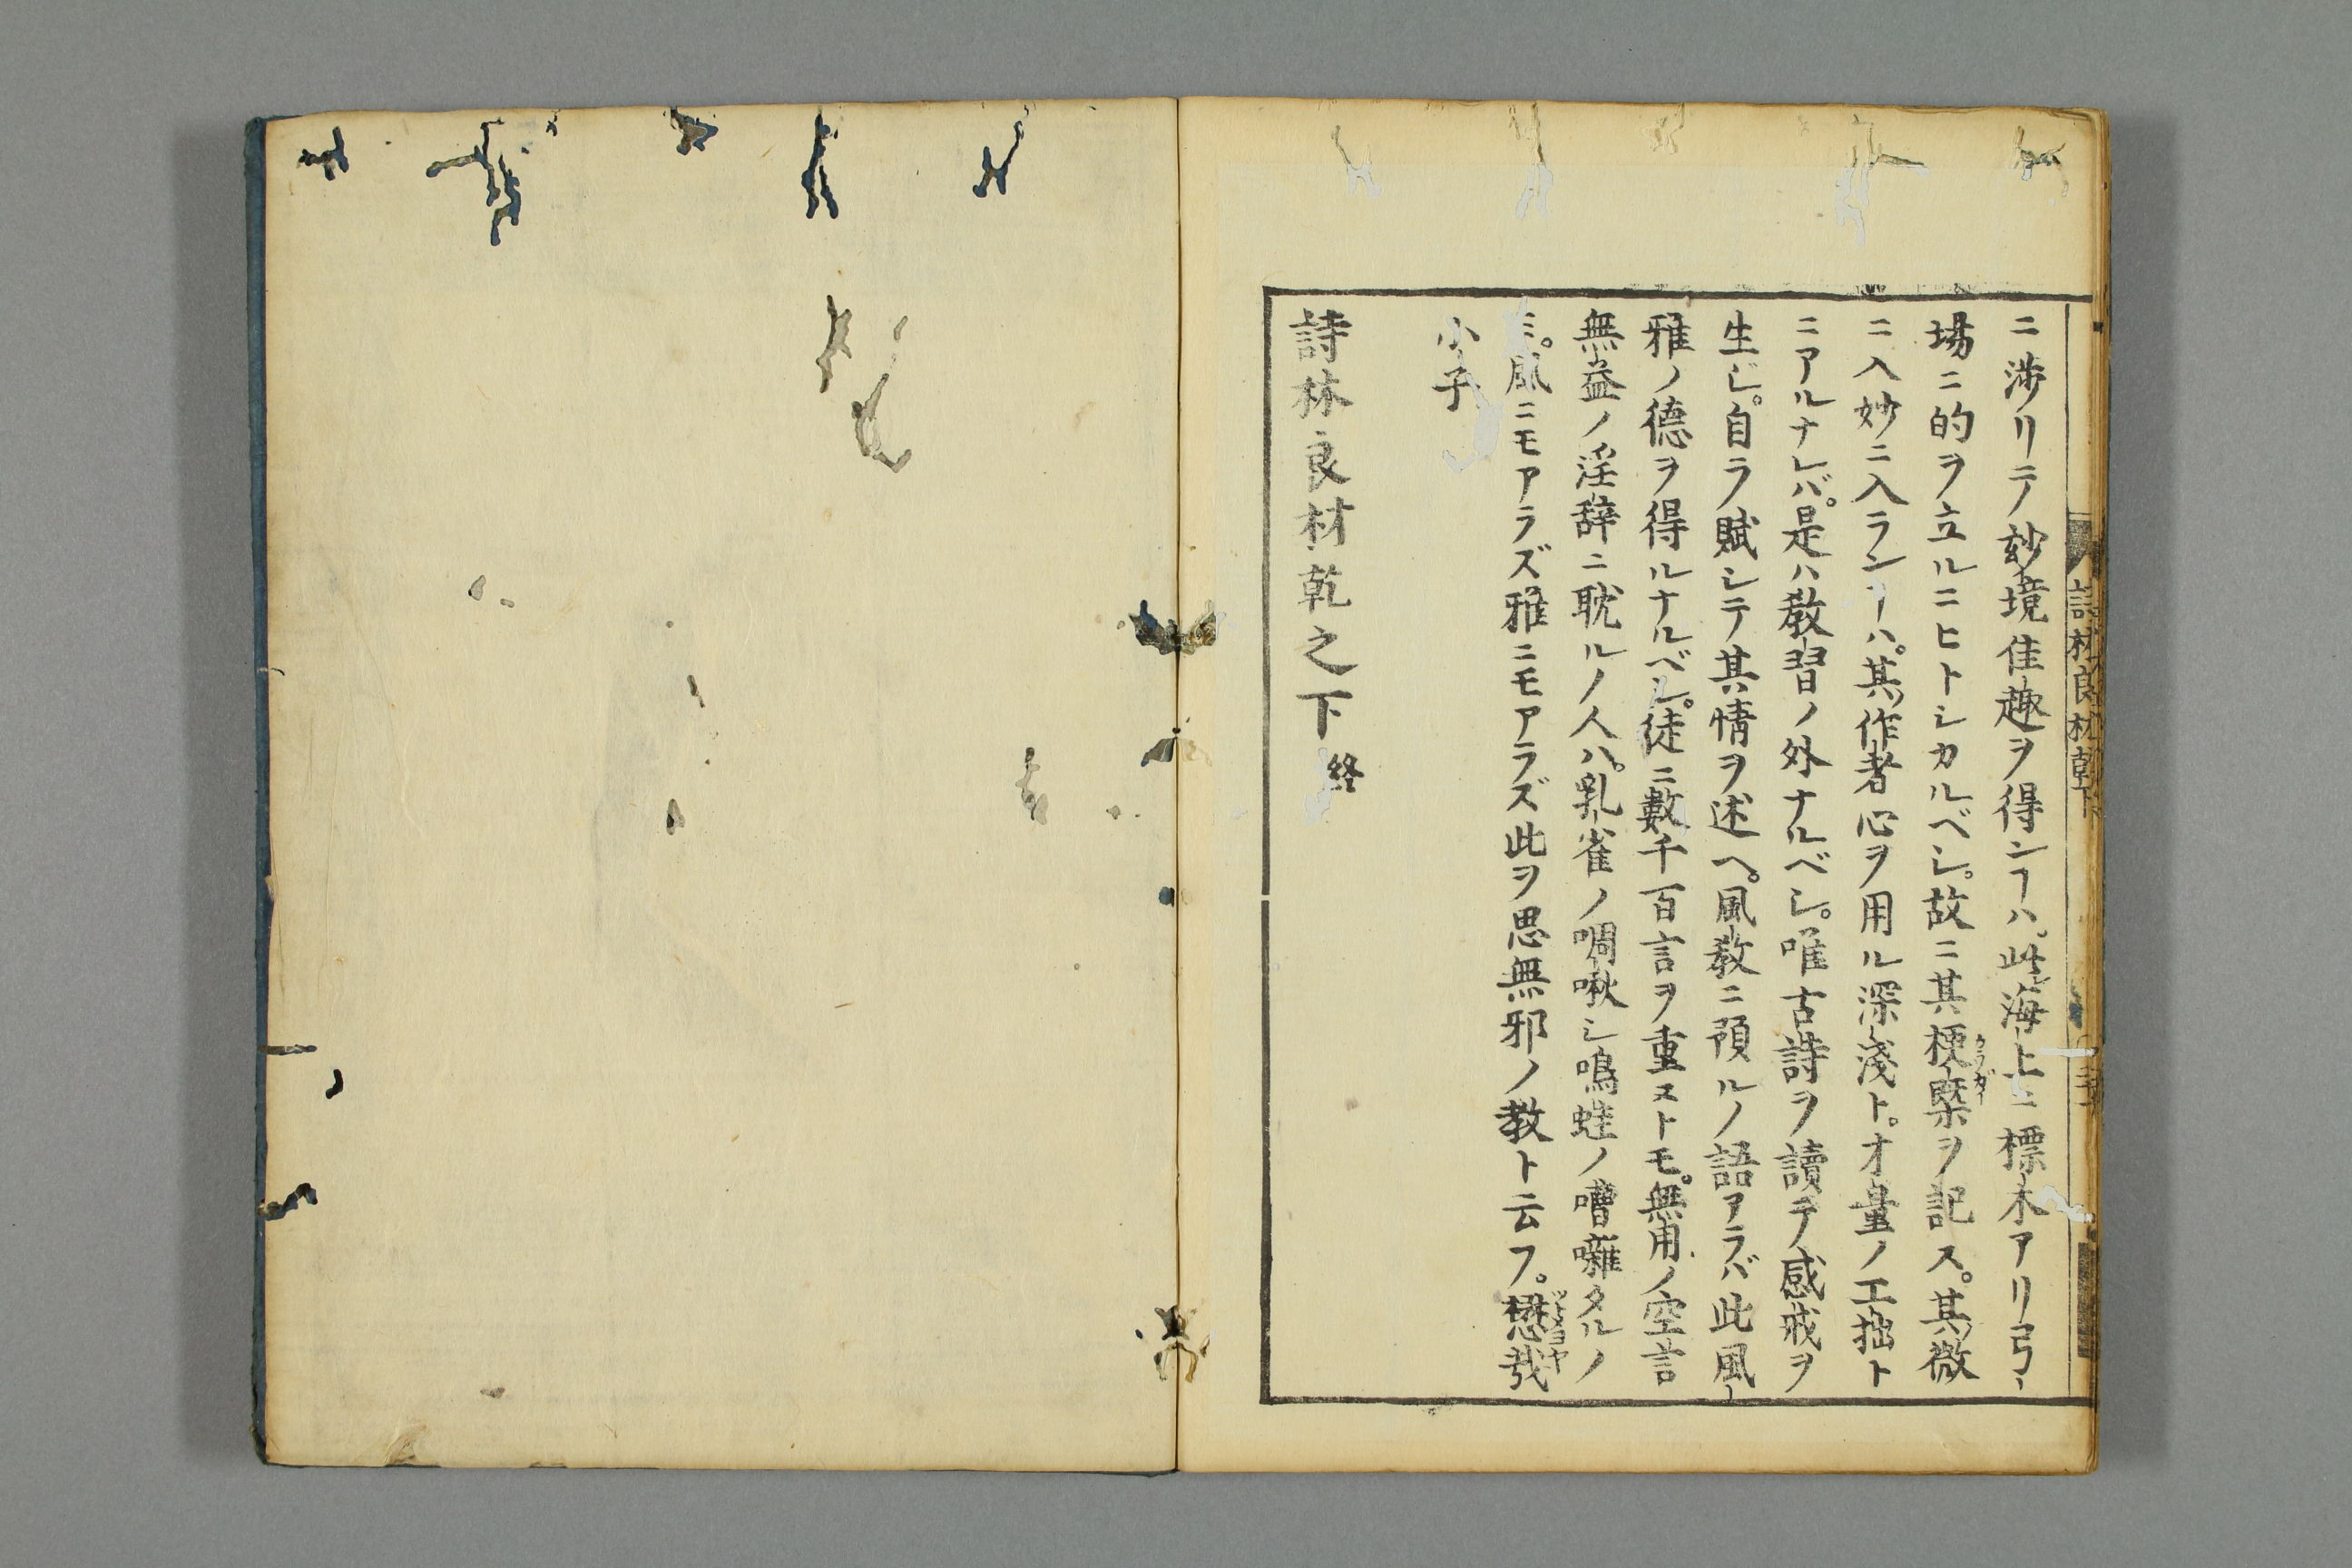 ニ渉リテ玅境佳趣ヲ得ンヿハ。此海上ニ標木アリ弓
場ニ的ヲ立ルニヒトシカルベシ。故ニ其梗槩ヲ記ス。其微
ニ入妙ニ入ランヿハ。其作者心ヲ用ル深淺ト。才量ノ工拙ト
ニアルナレバ。是ハ敎習ノ外ナルベシ。唯古詩ヲ讀テ感戒ヲ
生ジ。自ラ賦シテ其情ヲ述ヘ。風敎ニ預ルノ語アラバ此風
雅ノ德ヲ得ルナルベシ。徒ニ數千百言ヲ重ヌトモ。無用ノ空言
無益ノ淫辞ニ耽ルノ人ハ。乳雀ノ啁啾シ鳴蛙ノ嘈囃タルノ
ミ。風ニモアラズ雅ニモアラズ此ヲ思無邪ノ教ト云フ。懋哉
小子
詩林良材乾之下 終
詩林良材乾下